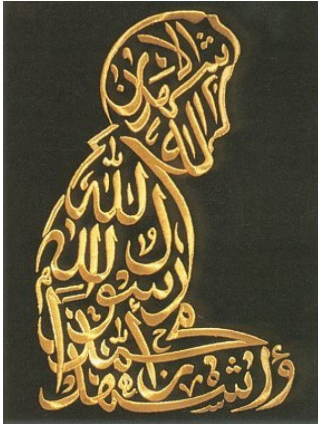 اشهد ان لا اله الا
الله
وأشهد ان محمدا
رسول الله